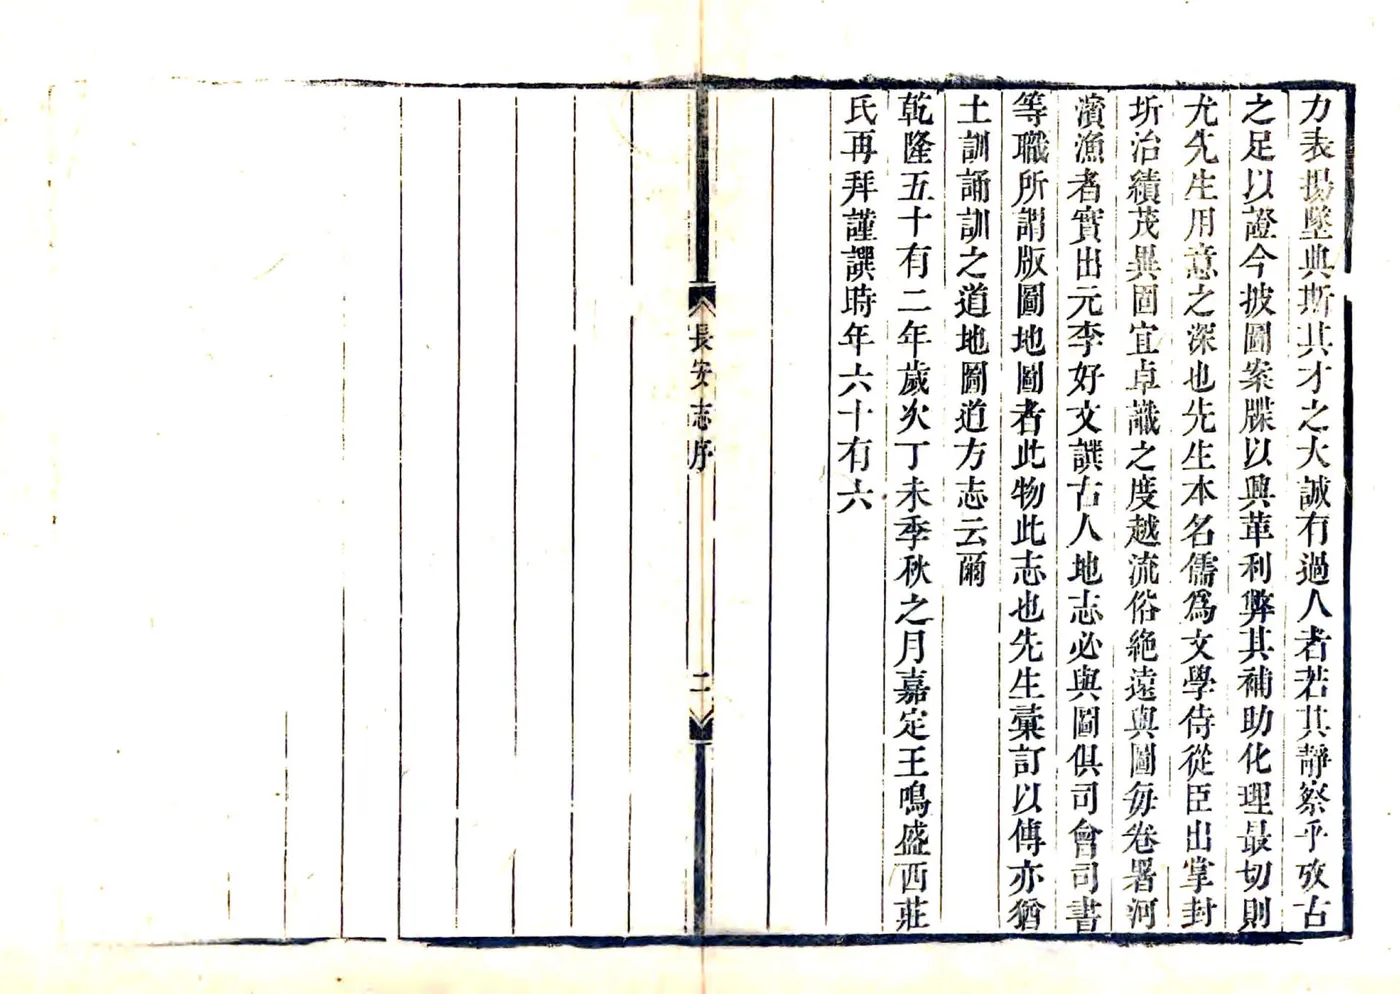 力表揚墜典斯其才之大誠有過人者若其靜察乎攷古
之足以證今披圖案牒以興革利弊其補助化理最切則
尤先生用意之深也先生本名儒爲文學侍從臣出掌封
圻治績茂異固宜卓識之度越流俗絶遠與圖每卷署河
濱漁者實出元李好文譔古人地志必與圖俱司會司書
等職所謂版圖地圖者此物此志也先生彙訂以傳亦猶
土訓誦訓之道地圖道方志云爾
乾隆五十有二年歲次丁未季秋之月嘉定王鳴盛西莊
氏再拜謹譔時年六十有六
長安志序
二